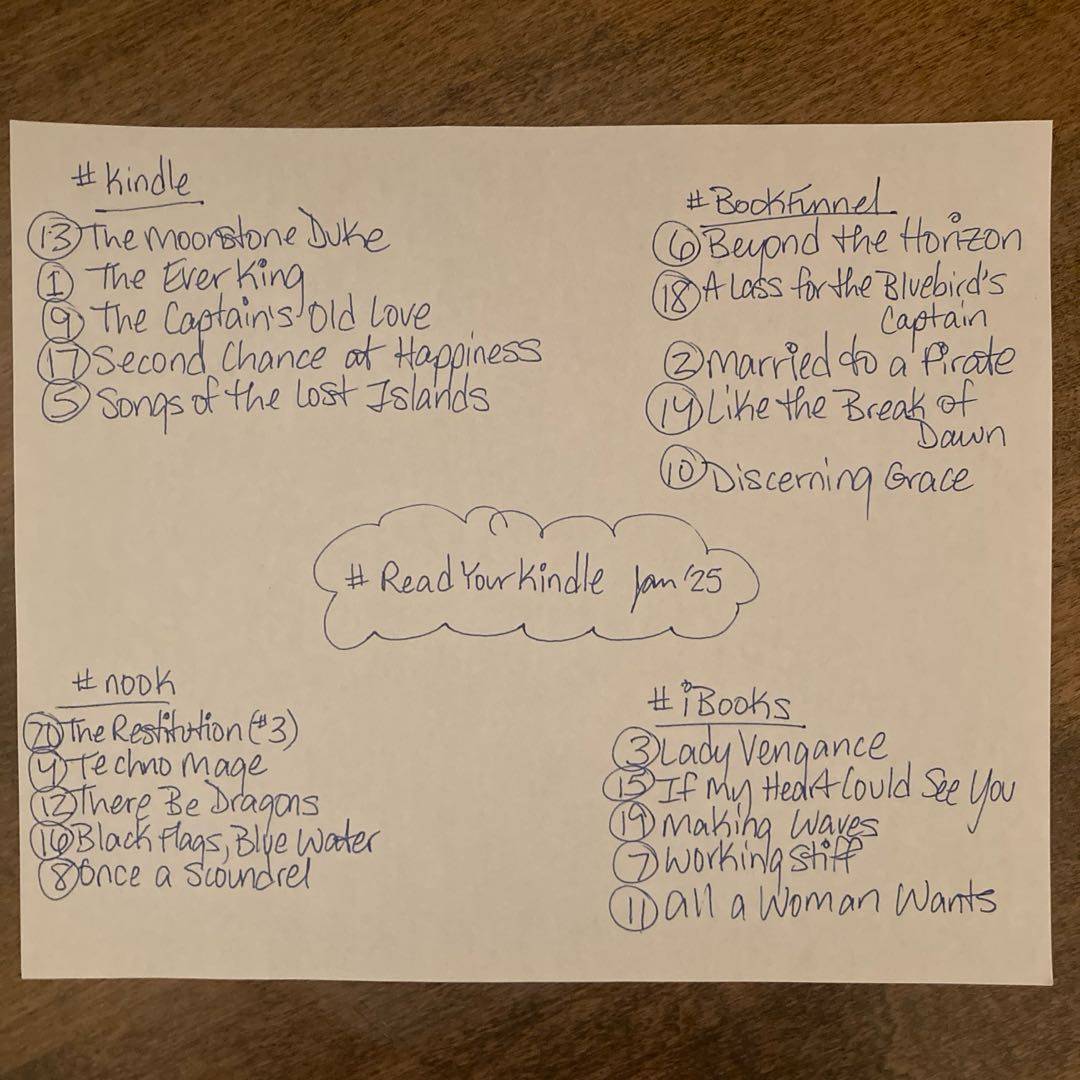 #Kindle
13 The Moonstone Duke
1 The Ever King
9 The Captain's Old Love
17 Second Chance at Happiness
5 Songs of the Lost Islands
#BookFunnel
6 Beyond the Horizon
18 A Lass for the Bluebird's
Captain
2 Married to a Pirate
14 Like the Break of
Dawn
10 Discerning Grace
#ReadYourKindle Jan '25
#nook
20 The Restitution (#3)
4 Techno Mage
12 There Be Dragons
16 Black Flags, Blue Water
8 Once a Scoundrel
#iBooks
3 Lady Vengance
15 If My Heart Could See You
19 Making Waves
7 Working Stiff
11 All a Woman Wants